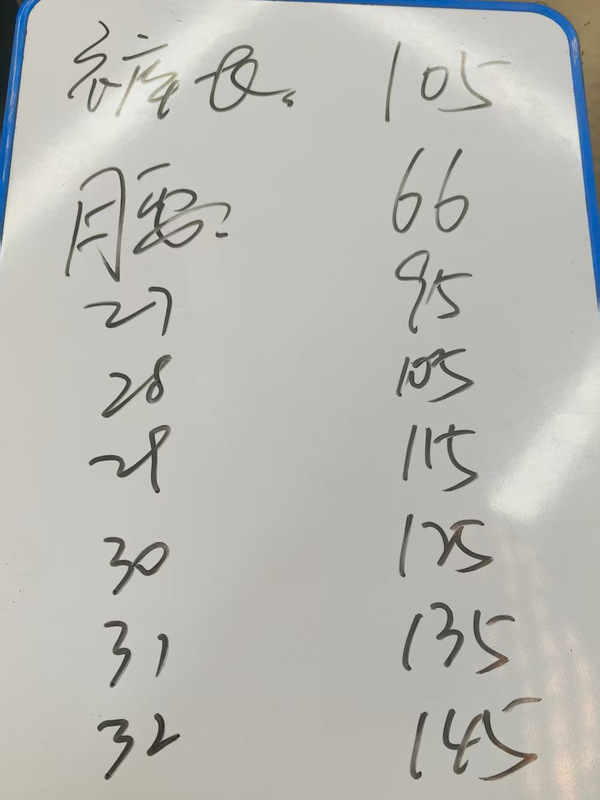 裤长: 105
腰: 66
27 95
28 105
29 115
30 125
31 135
32 145